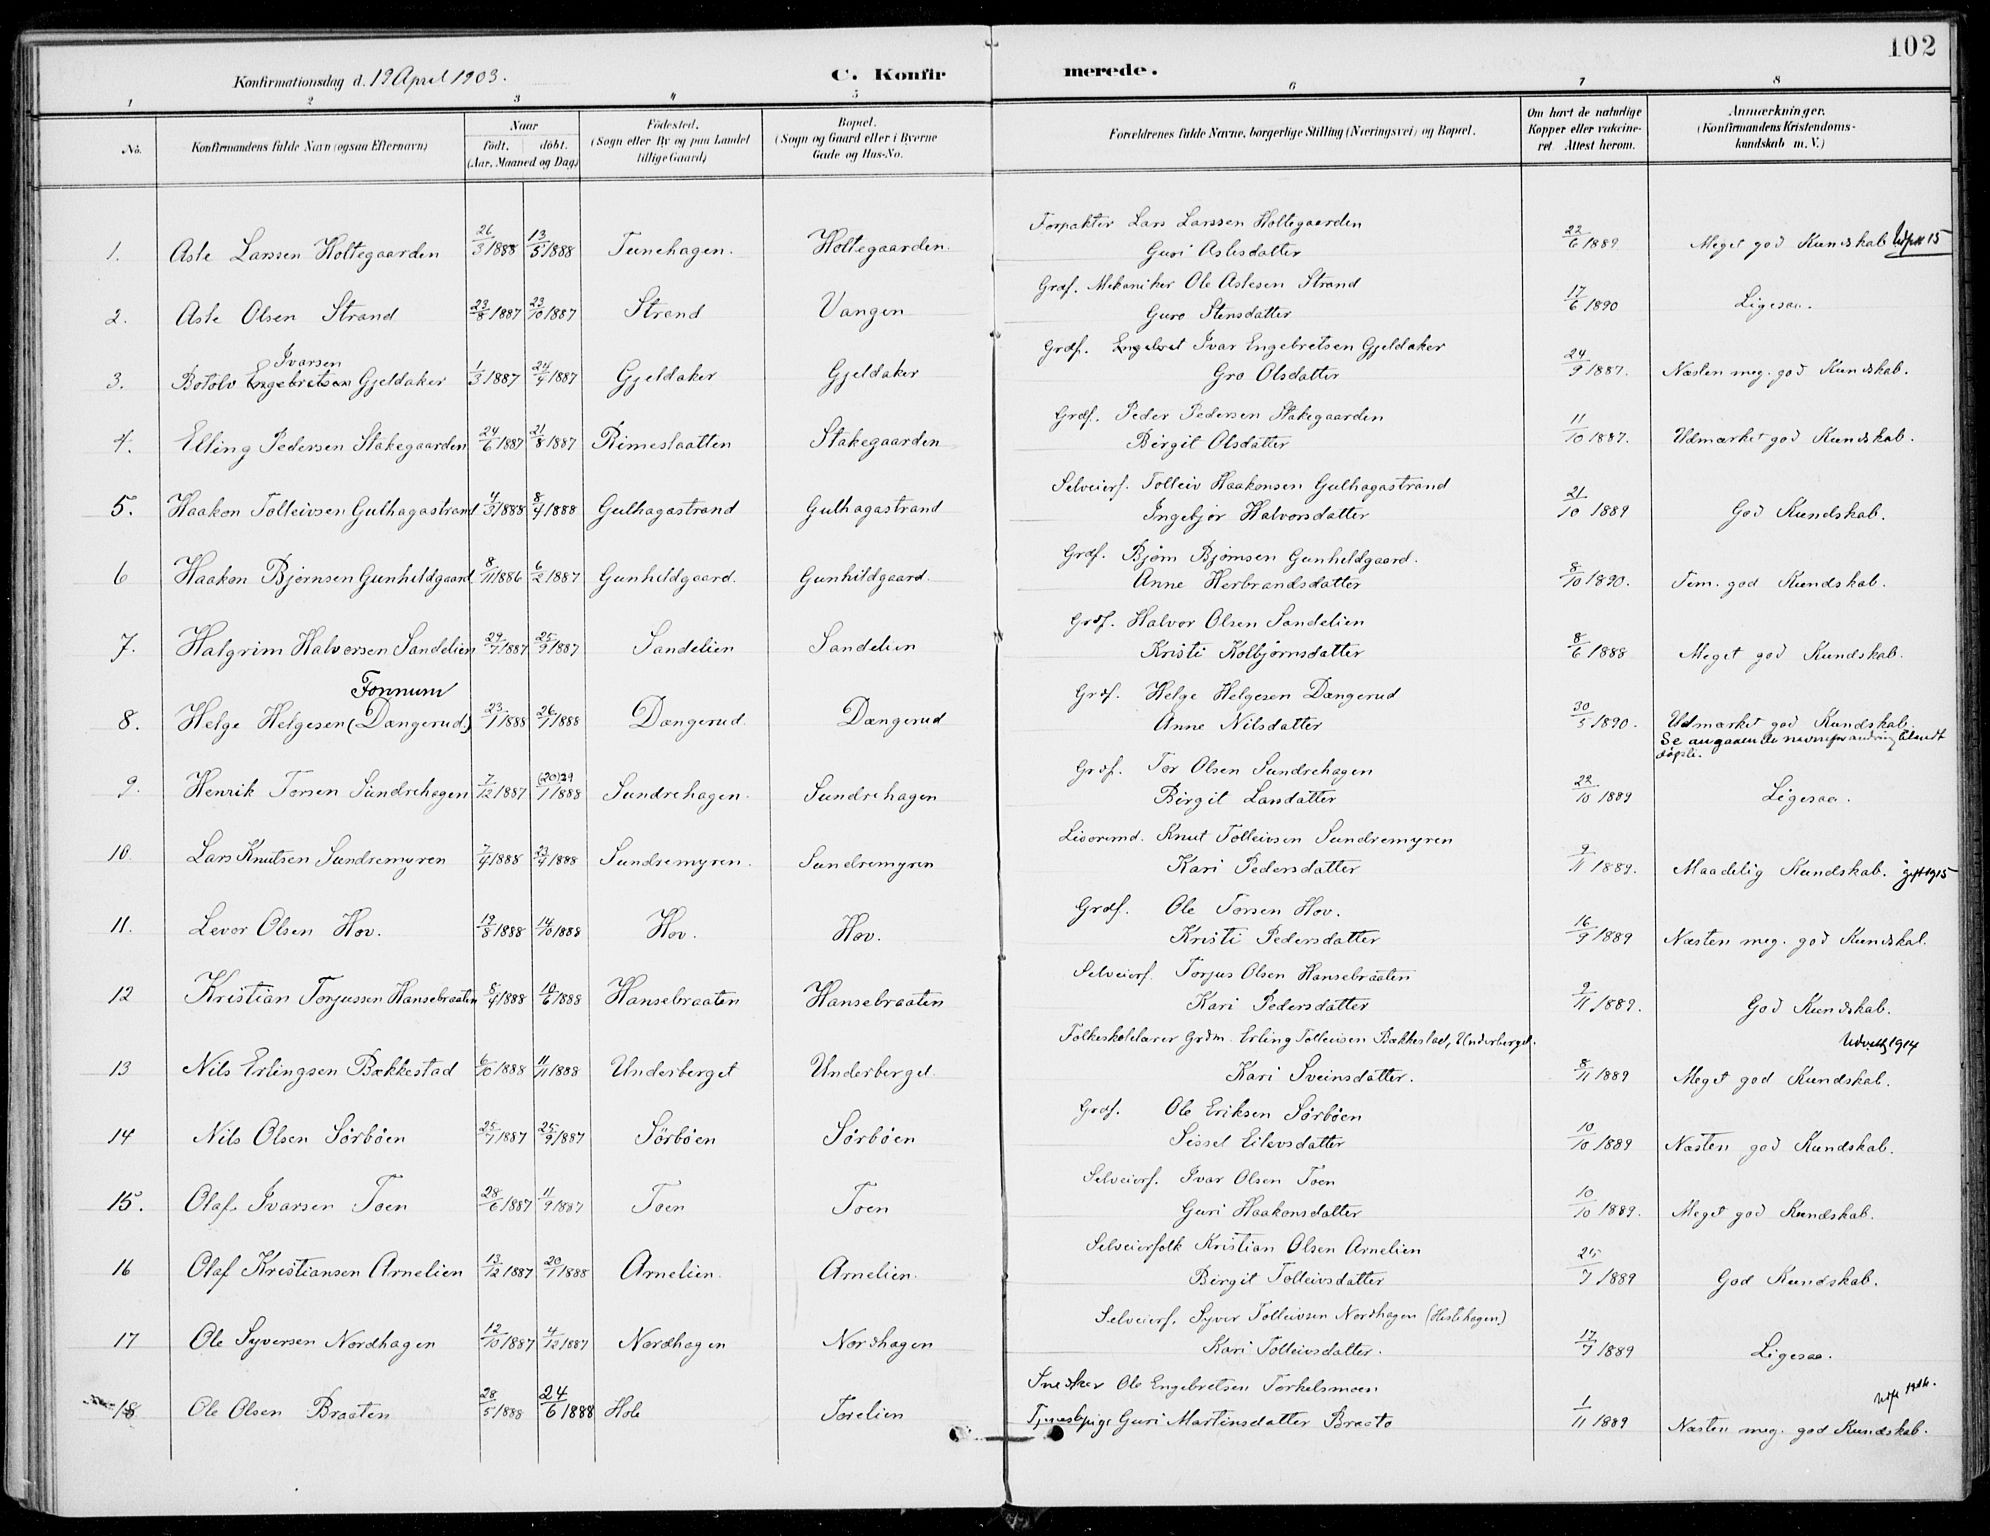 102
Konfirmationsdag d. 19 April 1903.
C. Konfirmerede.
1 2 3 4 5 6 7 8
No.
Konfirmandens fulde Navn (ogsaa Efternavn)
Naar
født. døbt.
(Aar, Maaned og Dag)
Fødested.
(Sogn eller By og paa Landet
tillige Gaard)
Bopæl.
(Sogn og Gaard eller i Byerne
Gade og Hus-No.
Forældrenes fulde Navne, borgerlige Stilling (Næringsvei) og Bopæl.
Om havt de naturlige
Kopper eller vaksine-
ret. Attest herom.
Anmærkninger.
(Konfirmandens Kristendoms-
kundskab m. V.)
1. Asle Larssen Holtegaarden 26/3 1888 13/5 1888 Tunehagen. Holtegaarden. Forpakter Lars Larssen Holtegaarden
Guri Aslesdatter 22/6 1889 Meget god Kundskab 15
2. Asle Olsen Strand 23/8 1887 23/10 1887 Strand Vangen Grdf. Mekaniker Ole Aslesen Strand
Guro Stensdatter 17/6 1890 Ligesaa.
Ivarsen
3. Botolv Engebretsen Gjeldaker 1/3 1887 24/4 1887 Gjeldaker Gjeldaker Grdf. Engebret Ivar Engebretsen Gjeldaker
Gro Olsdatter 24/9 1887. Næsten meg. god Kundskab.
4. Elling Pedersen Stakegaarden 24/6 1887 21/8 1887 Rimeslaatten Stakegaarden Grdf. Peder Pedersen Stakegaarden
Birgit Olsdatter 11/10 1887. Udmærket god Kundskab.
5. Haakon Tolleivsen Gulhagastrand 4/3 1888 8/4 1888 Gulhagastrand Gulhagastrand Selveierf. Tolleiv Haakonsen Gulhagastrand
Ingebjør Halvorsdatter 21/10 1889 God Kundskab.
6 Haakon Bjørnsen Gunhildgaard 8/11 1886 6/2 1887 Gunhildgaard. Gunhildgaard. Grdf. Bjørn Bjørnsen Gunhildgaard.
Anne Herbrandsdatter 8/10 1890. Tem. god Kundskab.
7. Halgrim Halvorsen Sandelien 29/7 1887 25/9 1887 Sandelien Sandelien Grdf. Halvor Olsen Sandelien
Kristi Kolbjørnsdatter 8/6 1888 Meget god Kundskab.
Fonnum
8. Helge Helgesen (Dængerud) 23/1 1888 26/1 1888 Dængerud. Dængerud Grdf. Helge Helgesen Dængerud
Anne Nilsdatter 30/5 1890. Udmærket god Kundskab.
Se angaaende navneforandring blandt
døpte.
9. Henrik Torsen Sundrehagen 7/12 1887 (20) 29/1 1888 Sundrehagen. Sundrehagen Grdf. Tor Olsen Sundrehagen
Birgit Larsdatter 22/10 1889 Ligesaa.
10. Lars Knutsen Sundremyren 7/4 1888 23/4 1888 Sundremyren. Sundremyren Knut Tolleivsen Sundremyren
Kari Pedersdatter 9/11 1889. Maadelig Kundskab. gift 1915
11. Levor Olsen Hov. 19/8 1888 14/10 1888 Hov. Hov. Grdf. Ole Torsen Hov.
Kristi Pedersdatter 16/9 1889 Næsten meg. god Kundskab.
12 Kristian Torjussen Hansebraaten 8/4 1888 10/6 1888 Hansebraaten Hansebraaten Selveierf. Torjus Olsen Hansebraaten
Kari Pedersdatter 9/11 1889. God Kundskab.
13 Nils Erlingsen Bækkestad 6/10 1888 11/11 1888 Underberget Underberget. Folkeskolelærer Grdm. Erling Tolleivsen Bækkestad, Underberget.
Kari Sveinsdatter. 8/11 1889 Meget god Kundskab. 1914
14 Nils Olsen Sørbøen 25/7 1887 25/9 1887 Sørbøen Sørbøen Grdf. Ole Eriksen Sørbøen
Sissel Eilevsdatter 10/10 1889 Næsten god Kundskab.
15. Olaf Ivarsen Toen 28/6 1887 11/9 1887 Toen Toen Selveierf. Ivar Olsen Toen
Guri Haakonsdatter 10/10 1889. Meget god Kundskab.
16 Olaf Kristiansen Arnelien 13/12 1887 20/1 1888 Arnelien. Arnelien. Selveierfolk Kristian Olsen Arnelien
Birgit Tolleivsdatter 25/7 1889 God Kundskab.
17 Ole Syversen Nordhagen 12/10 1887 4/12 1887 Nordhagen Nordhagen Selveierf. Syver Tolleivsen Nordhagen (Hestehagen)
Kari Tolleivsdatter. 17/7 1889 Ligesaa.
18 Ole Olsen Braaten 28/5 1888 24/6 1888 Hole Torelien Snedker Ole Engebretsen Torkelsmoen
Tjenestpige Guri Martinsdatter Braato 1/11 1889 Næsten meg. god Kundskab.